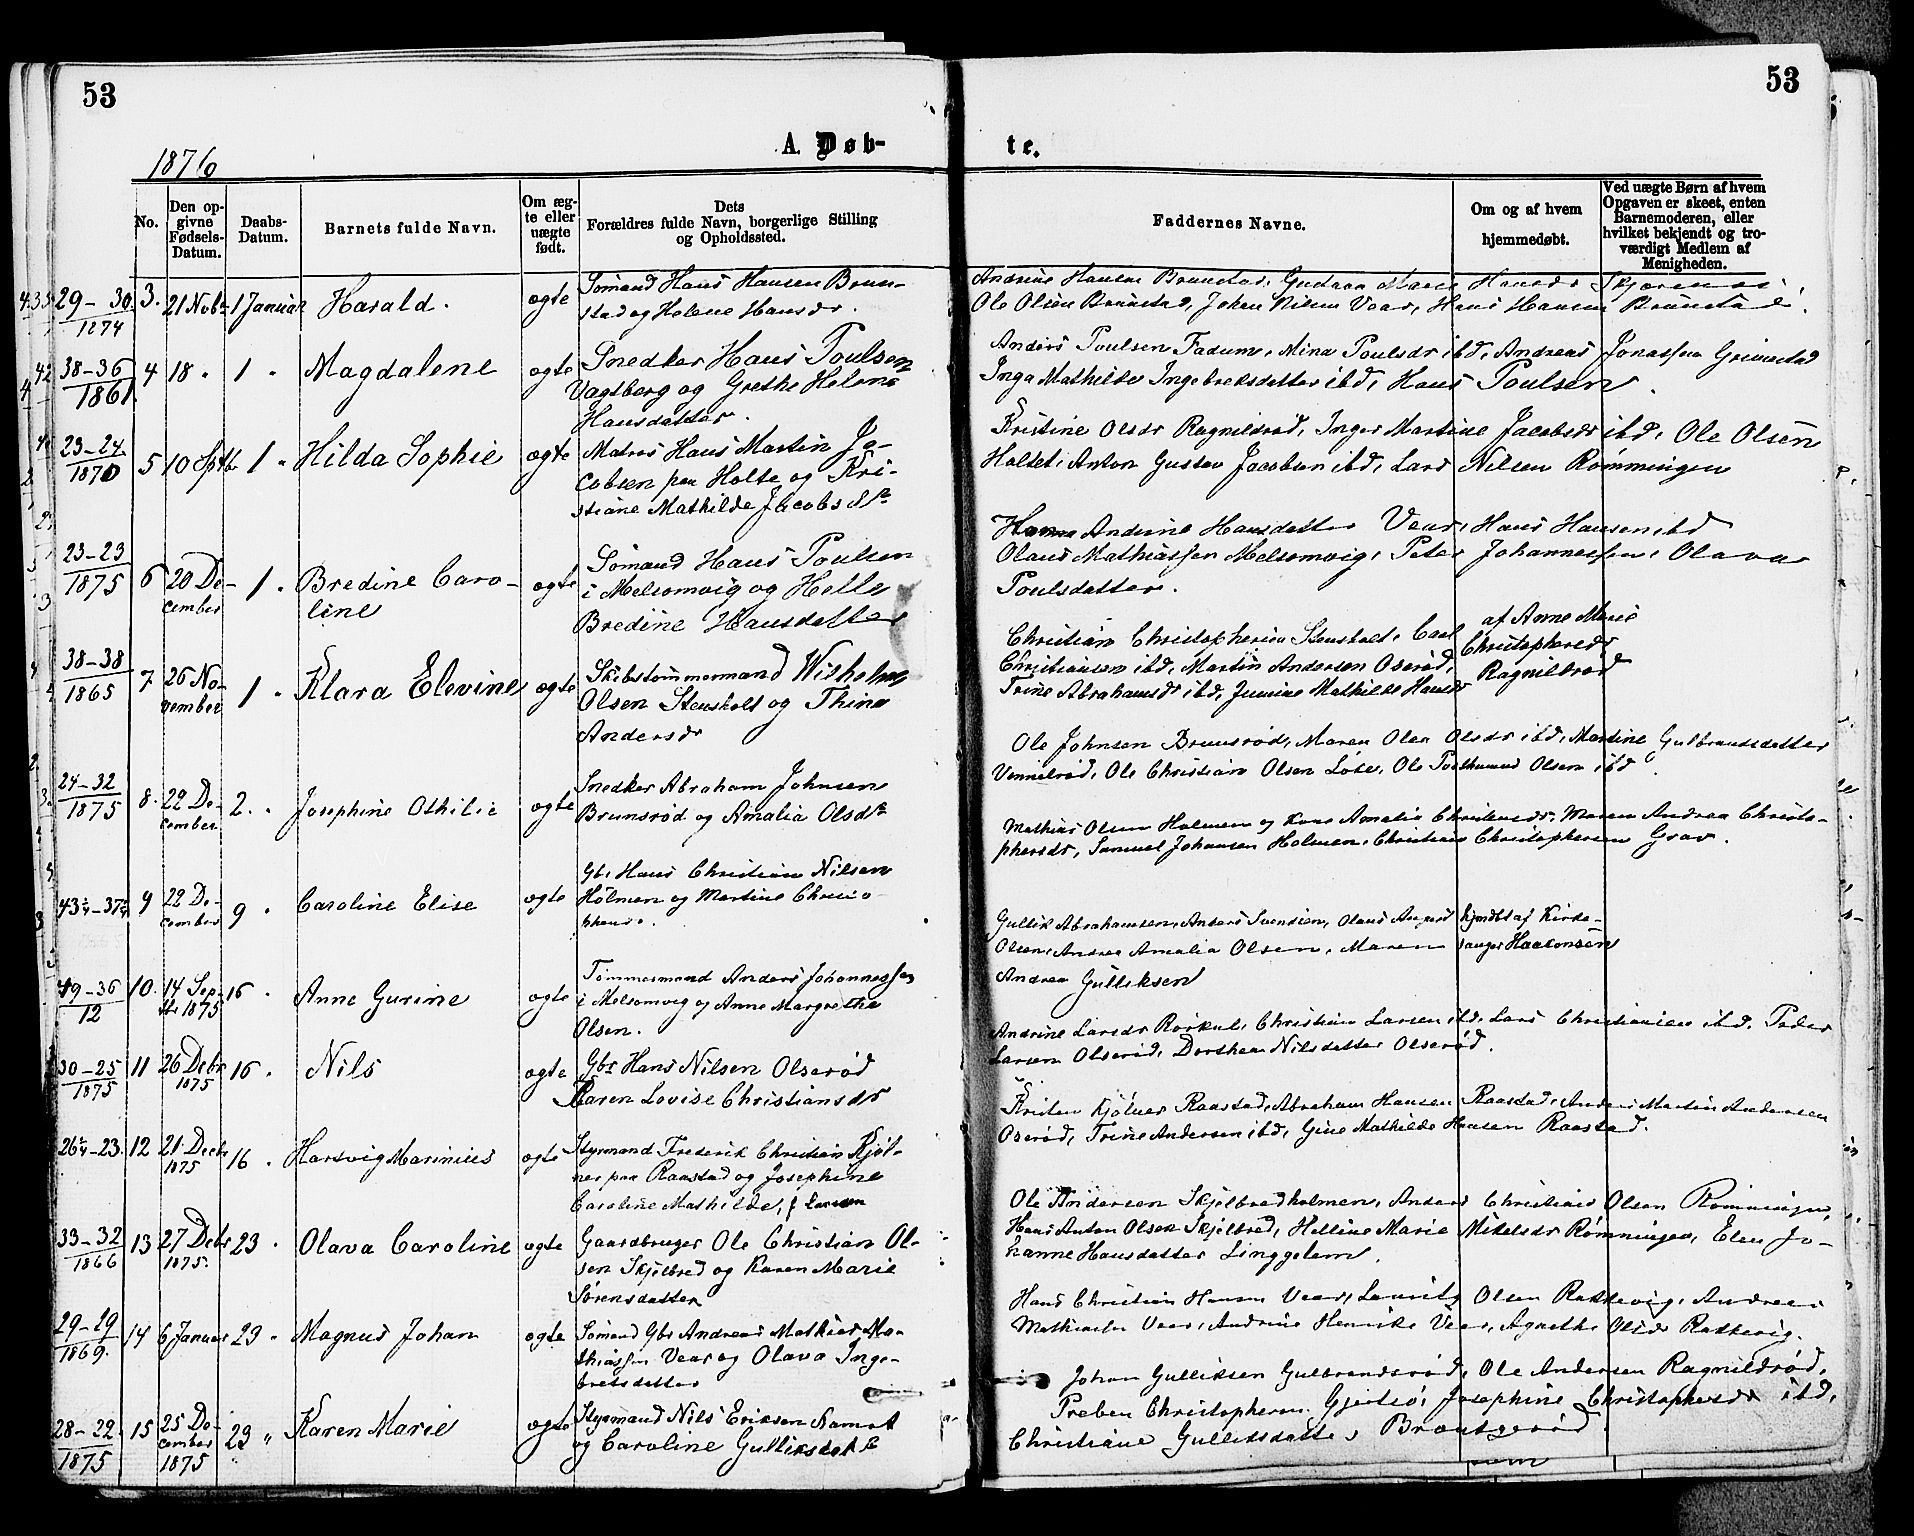 53
53
A. Døb-
te.
1876
No.
Den op-
givne
Fødsels-
Datum.
Daabs-
Datum.
Barnets fulde Navn.
Om æg-
te eller
uægte
født.
Dets
Forældres fulde Navn, borgerlige Stilling
og Opholdssted.
Faddernes Navne.
Om og af hvem
hjemmedøbt.
Ved uægte Børn af hvem
Opgaven er skeet, enten
Barnemoderen, eller
hvilket bekjendt og tro-
værdigt Medlem af
Menigheden.
29-30
1874
3. 21 Nobr 1 Januar Harald. ægte
Sømand Hans Hansen Brun-
stad og Helene Hansdr.
Andrine Hansen Brunstad, Gudrun Marie Hansdr
Ole Olsen Brunstad, Johan Nilsen Vear, Hans Hansen Brunstad.
38-36
1861.
4 18 " 1 " Magdalene ægte
Snedker Hans Poulsen
Vagtberg og Grethe Helene
Hansdatter.
Anders Poulsen Fadum, Mina Poulsdr ibd, Andreas Jonassen Grimestad
Inga Mathilde Ingebretsdatter ibd, Hans Poulsen.
23-24
1870
5 10 Sptb 1 " Hilda Sophie ægte
Matros Hans Martin Ja-
cobsen paa Holte og Kri-
stiane Mathilde Jacobsdtr
Kristine Olsdr Ragnildrød, Inger Martine Jacobsdr ibd, Ole Olsen
Holtet, Anton Gustav Jacobsen ibd, Lars Nilsen Rømmingen
23-23
1875
6 20 De-
cember
1 " Bredine Caro-
line
ægte
Sømand Hans Poulsen
i Melsomvig og Helle
Bredine Hansdatter
Andrine Hansdatter Vear, Hans Hansen ibd
Olaus Mathiassen Melsomvig, Peter Johannessen, Olava
Poulsdatter.
38-38
1865
7 26 No-
vember
1 " Klara Elevine ægte
Skibstømmermand Wilhelm
Olsen Stensholt og Thina
Andersdr
Christian Christophersen Stensholt, Carl
Christiansen ibd, Martin Andersen Oserød,
Trine Abrahamsdr ibd, Jumine Mathilde Hansdr
af Anne Marie
Christophersdr
Ragnildrød
24-32
1875
8. 22 De-
cember
2. " Josephine Othilie ægte
Snedker Abraham Johnsen
Brunsrød og Amalia Olsdtr
Ole Johnsen Brunsrød, Maren Olea Olsdr ibd, Martine Gulbrandsdatter
Vennelrød, Ole Christian Olsen Løse, Ole Posthumus Olsen ibd
43¼-37¾ 9 22 De-
cember
9 " Caroline Elise ægte
Gbr Hans Christian Nilsen
Holmen og Martine Christo-
phersdr.
Mathias Olsen Holmen og Kone Amalia Christensdr, Maren Andrea Christo-
phersdr, Samuel Johansen Holmen, Christian Christophersen Grav.
49-36
12
10. 14 Sep-
tbr 1875
16 " Anne Gurine ægte
Tømmermand Anders Johannessen
i Melsomvig og Anne Margrethe
Olsen.
Gullik Abrahamsen, Anders Svendsen, Olaus August
Olsen, Andrea Amalia Olsen, Maren
Andrea Gulliksen
hjmdbt af Kirke-
sanger Haakonsen
30-25
1875
11 26 Debr
1875
16 " Nils ægte
Gbr Hans Nilsen Olserød
Karen Lovise Christiansdr
Andrine Larsdr Rørkul, Christian Larsen ibd, Lars Christiansen ibd, Peder
Larsen Olserød, Dorthea Nilsdatter Olserød.
26¼-23. 12 21 Decbr
1875
16 " Hartvig Marinius ægte
Styrmand Frederik Christian Kjøl-
ner paa Raastad og Josephine
Caroline Mathilde, f. Larsen
Kristen Kjølner Raastad, Abraham Hansen Raastad, Anders Martin Andersen
Oserød, Trine Andersen ibd, Gine Mathilde Hansen Raastad.
33-32
1866
13 27 Debr
1875.
23 " Olava Caroline ægte
Gaardbruger Ole Christian Ol-
sen Skjelbred og Karen Marie
Sørensdatter
Ole Andersen Skjelbredholmen, Anders Christian Olsen Rømmingen,
Hans Anton Olsen Skjelbred, Helline Marie Mikelsdr Rømmingen, Elen Jo-
hanne Hansdatter Linggelem.
29-29
1869.
14 6 Januar 23 " Magnus Johan ægte
Sømand Gbr Andreas Mathias Ma-
thiassen Vear og Olava Inge-
bretsdatter
Hans Christian Hansen Vear, Lauritz Olsen Rakkevig, Andreas
Mathiassen Vear, Andrine Henrikke Vear, Agnethe Olsdr Rakkevig.
28-22
1875
15 25 De-
cember
1875
23 " Karen Marie ægte
Styrmand Nils Eriksen Namot
og Caroline Gulliksdatr
Johan Gulliksen Gulbrandsrød, Ole Andersen Ragnildrød,
Preben Christophersen Gjertsø, Josephine Christophersdr ibd,
Christiane Gulliksdatter Brautserød.